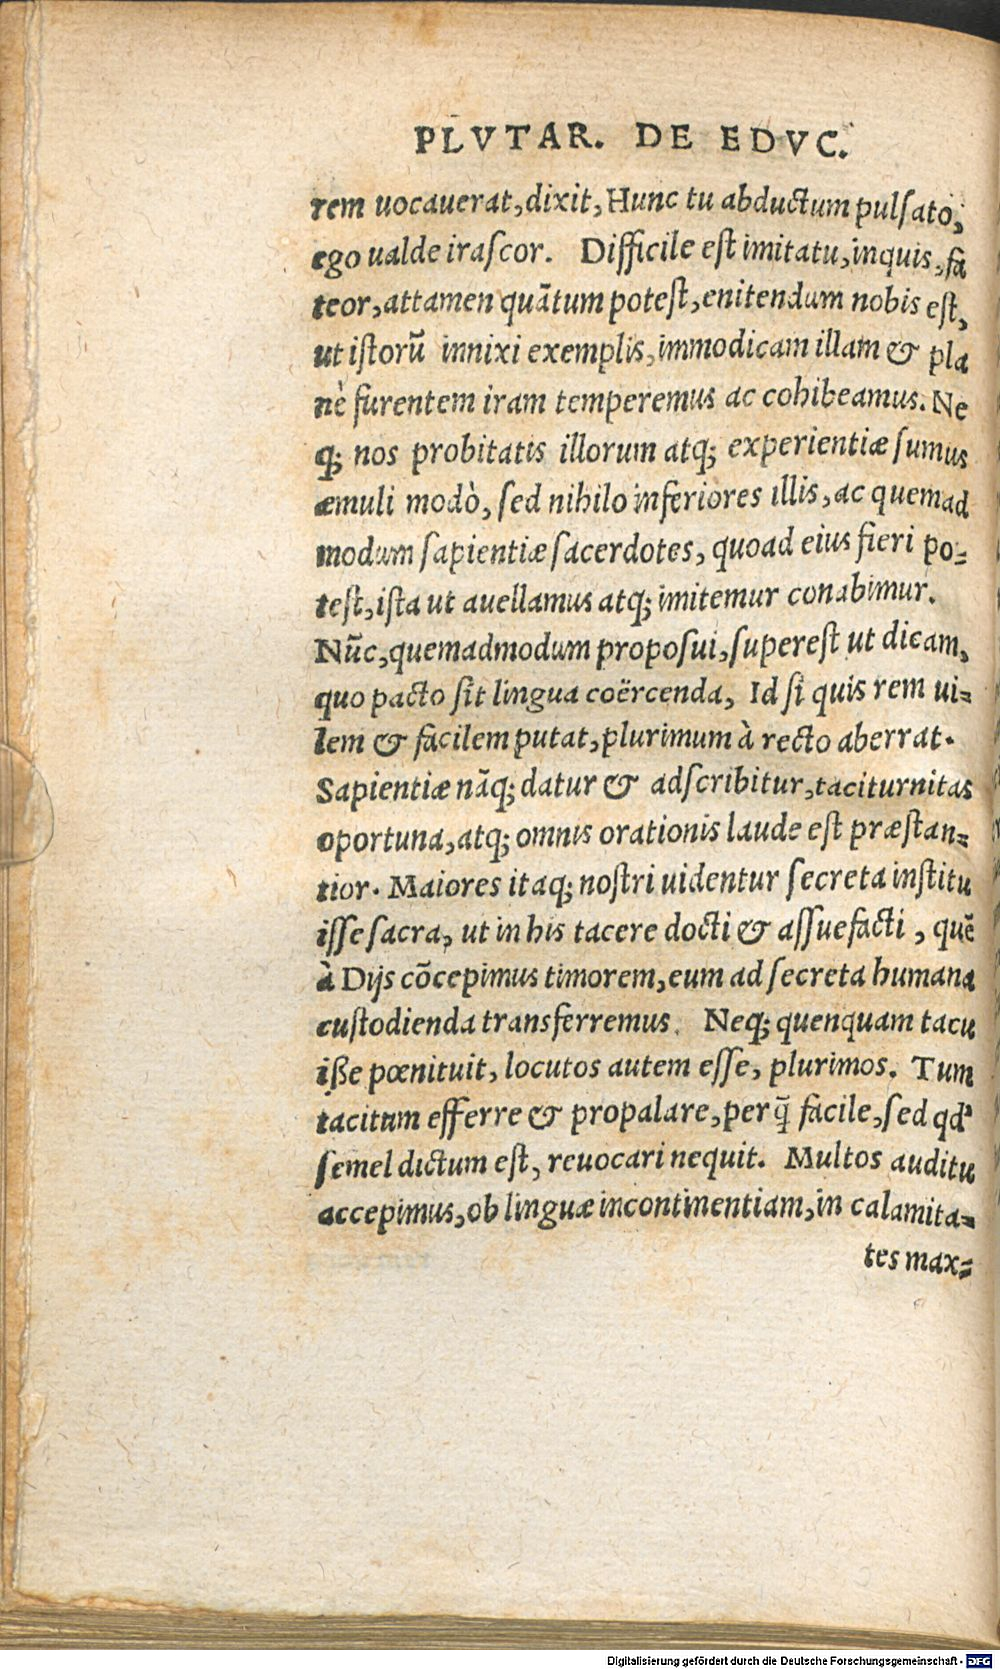 PLVTAR. DE EDVC.
rem uocauerat, dixit, Hunc tu abductum pulſato,
ego ualde iraſcor. Difficile eſt imitatu, inquis, fa
teor, attamen quātum poteſt, enitendum nobis eſt,
ut iſtorū innixi exemplis, immodicam illam & pla
nè furentem iram temperemus ac cohibeamus. Ne
q; nos probitatis illorum atq; experientiæ ſumus
æmuli modò, ſed nihilo inferiores illis, ac quemad
modum ſapientiæ ſacerdotes, quoad eius fieri po=
teſt, iſta ut auellamus atq; imitemur conabimur.
Nūc, quemadmodum propoſui, ſupereſt ut dicam,
quo pacto ſit lingua coërcenda, Id ſi quis rem ui=
lem & facilem putat, plurimum à recto aberrat.
Sapientiæ nāq; datur & adſcribitur, taciturnitas
oportuna, atq; omnis orationis laude eſt præſtan=
tior. Maiores itaq; noſtri uidentur ſecreta inſtitu
iſſe ſacra, ut in his tacere docti & aſſuefacti, quē
à Dijs cōcepimus timorem, eum ad ſecreta humana
cuſtodienda transferremus. Neq; quenquam tacu
iße pœnituit, locutos autem eſſe, plurimos. Tum
tacitum efferre & propalare, per q̄ facile, ſed qd'
ſemel dictum eſt, reuocari nequit. Multos auditu
accepimus, ob linguæ incontinentiam, in calamita=
tes max=
Digitalisierung gefördert durch die Deutsche Forschungsgemeinschaft - DFG